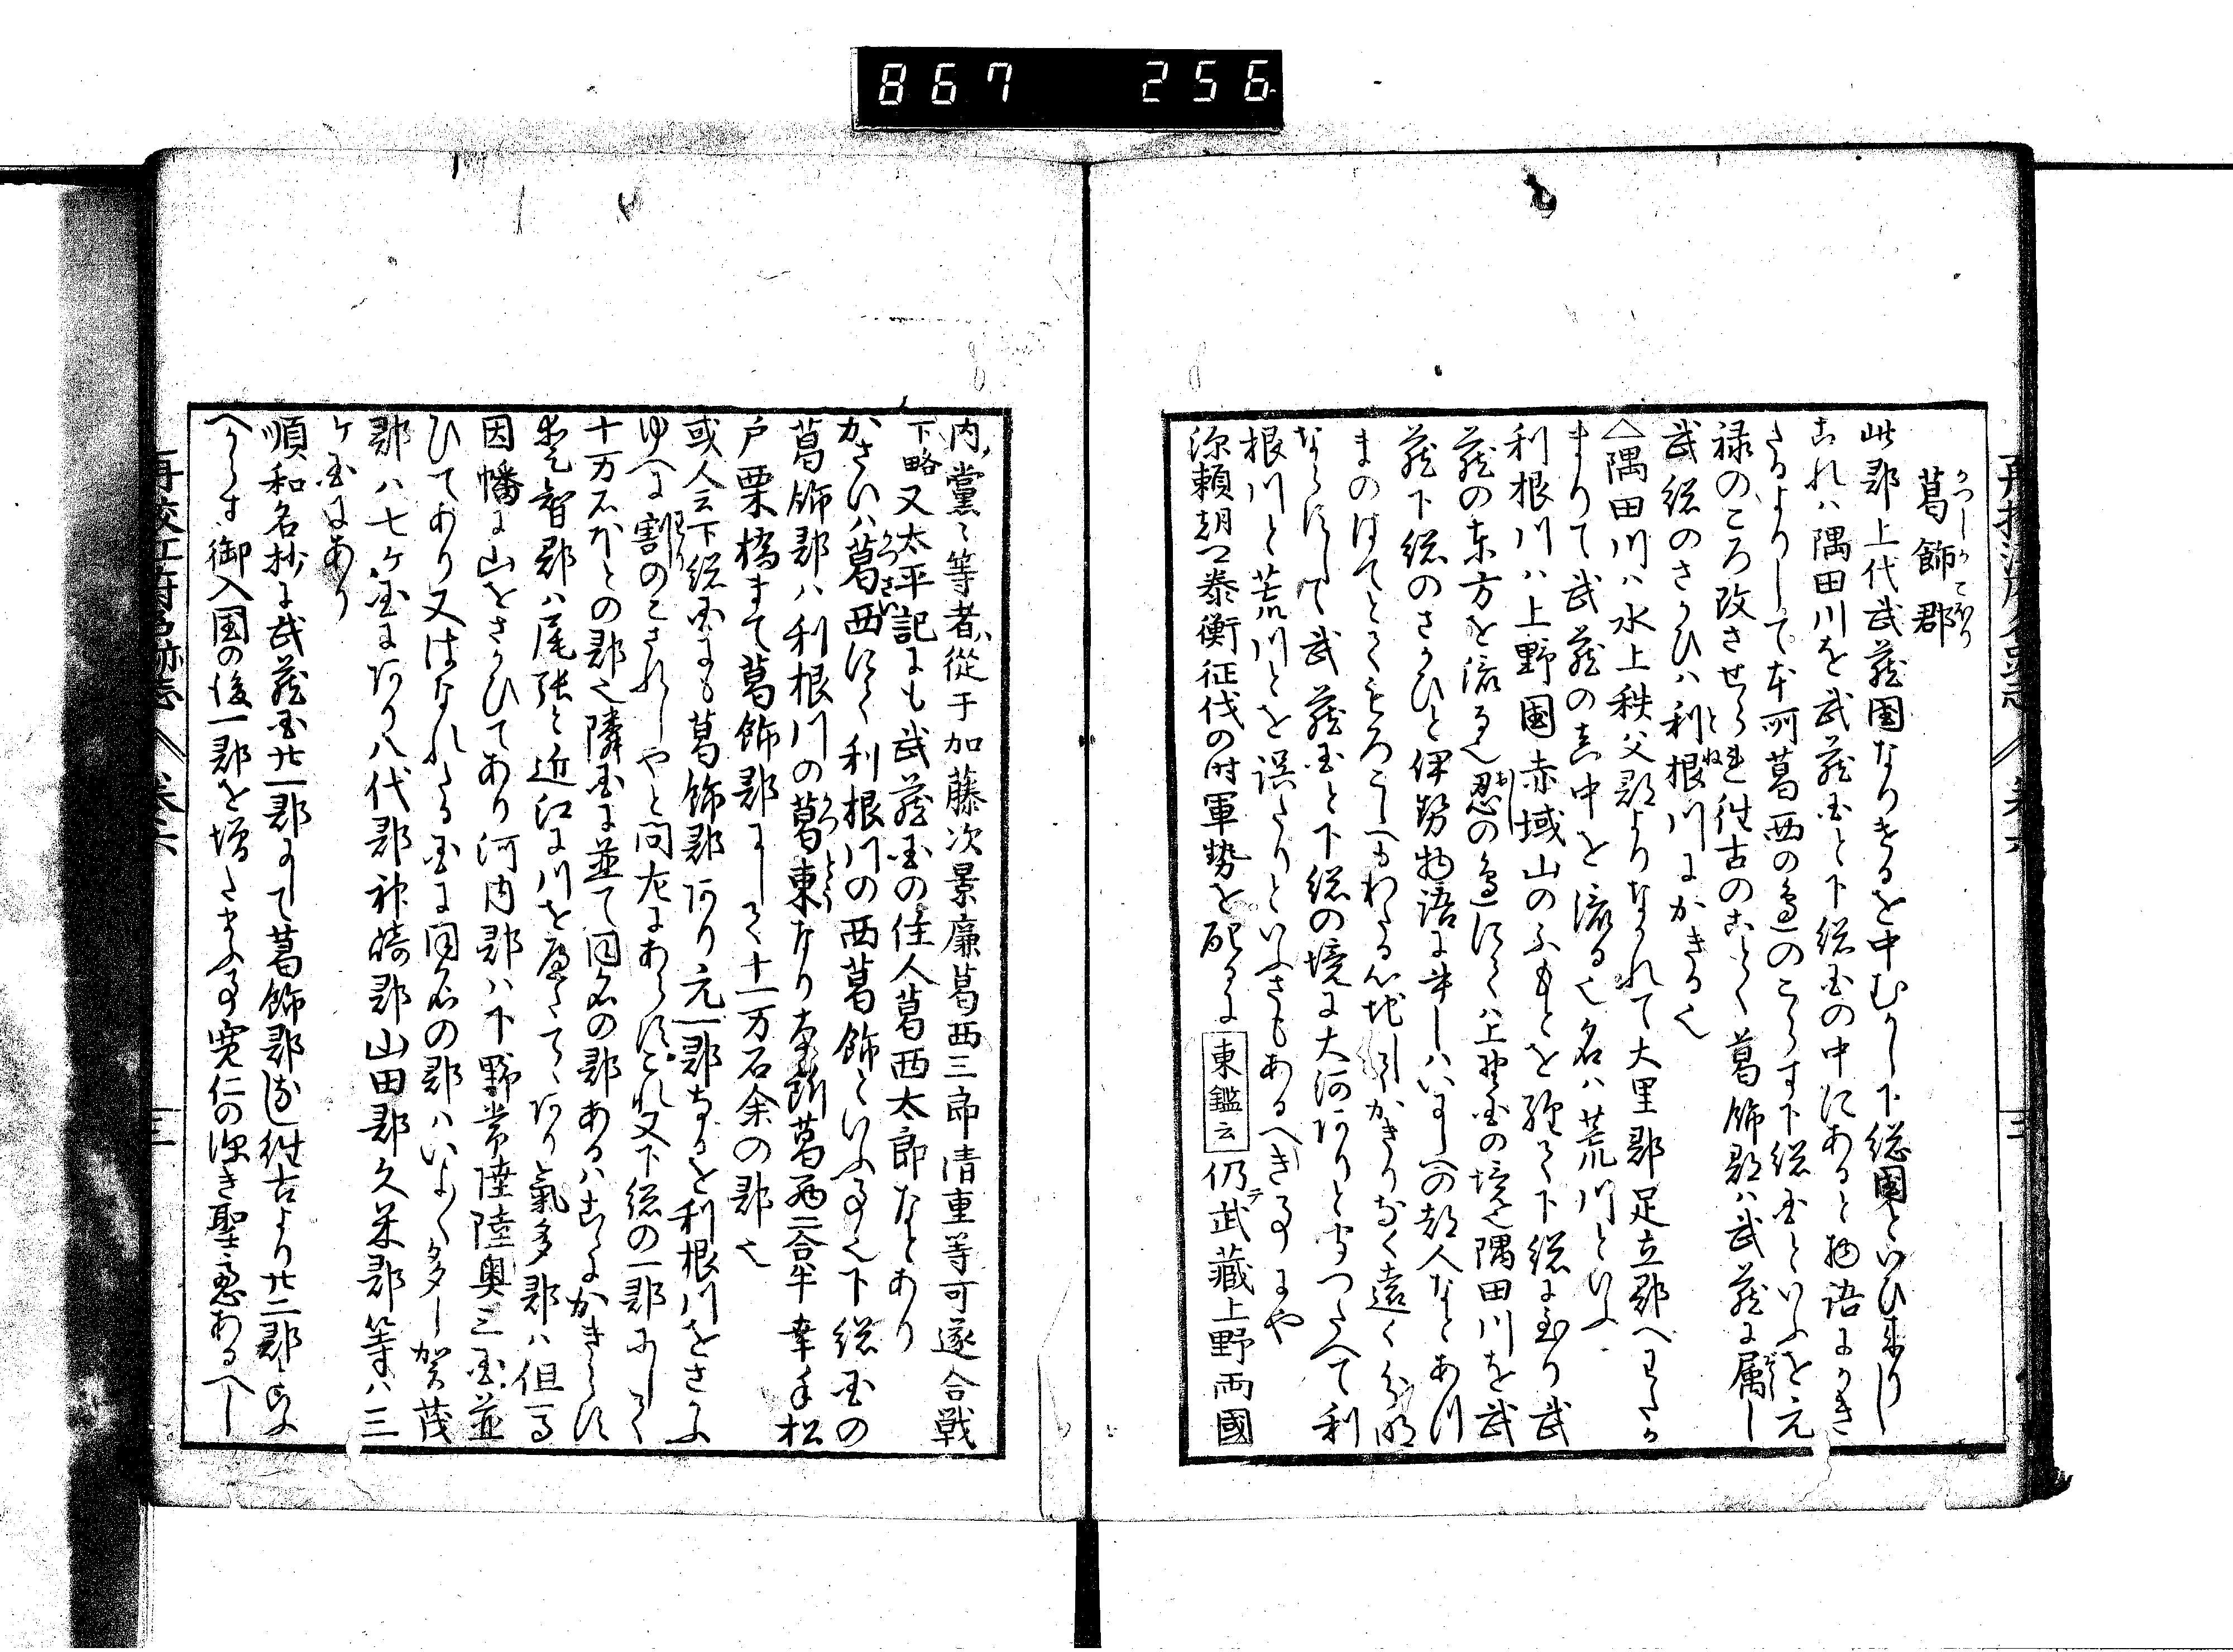 867 256
葛飾郡
此郡上代武蔵国なりきるを中むかし下総国といひ来りし
されハ隅田川を武蔵国と下総国の中にあると物語にかき
たるよりしてや本所葛西の辺のこらす下総国といふを元
禄のころ改させられ往古のことく葛飾郡ハ武蔵に属し
武総のさかひハ利根川にかきる也
△隅田川ハ水上秩父郡よりなかれて大里郡足立郡へ
まりて武蔵の真中を流る也名ハ荒川といふ
利根川ハ上野国赤城山のふもとを経て下総に至り武
蔵の東方を流る也忍の辺にてハ上野国の境也隅田川を武
蔵下総のさかひと伊勢物語に書しハいにしへの都人なとあつ
まのはてとてこゝろこしへもわたる心地しかきりなく遠く
ならひて武蔵国と下総の境に大河ありと云つたへて利
根川と荒川とを誤たりといふさもあるへき事にや
源頼朝公泰衡征伐の時軍勢を配るに 東鑑云 仍テ武蔵上野両國
内ノ黨々等者ハ從于加藤次景廉葛西三郎清重等可遂合戦
下略 又太平記にも武蔵国の住人葛西太郎なとあり
かさいハ葛西にて利根川の西葛飾といふ事也下総国の
葛飾郡ハ利根川の葛東なり 葛西二合半幸手松
戸栗橋まて葛飾郡にして十一万石余の郡也
或人云下総国にも葛飾郡あり元一郡なるを利根川をさかふ
ゆへに割のこされしやと問左にあらすこれ又下総の一郡にして
十万石ほとの郡也隣国に並て同名の郡あるハこゝにかきらす
愛智郡ハ尾張と近江に川を隔てゝあり氣多郡ハ但馬
因幡に山をさかひてあり河内郡ハ下野常陸陸奥三国並
ひてあり又はなれたる国に同名の郡ハいよ〳〵多し賀茂
郡ハ七ケ国にあり八代郡神崎郡山田郡久米郡等ハ三
ケ国にあり
順和名抄に武蔵国廿一郡にて葛飾郡なし往古より廿二郡
へからす御入国の後一郡を増たまふ事寛仁の深き聖慮あるへし
再校江府名跡志 巻六 三